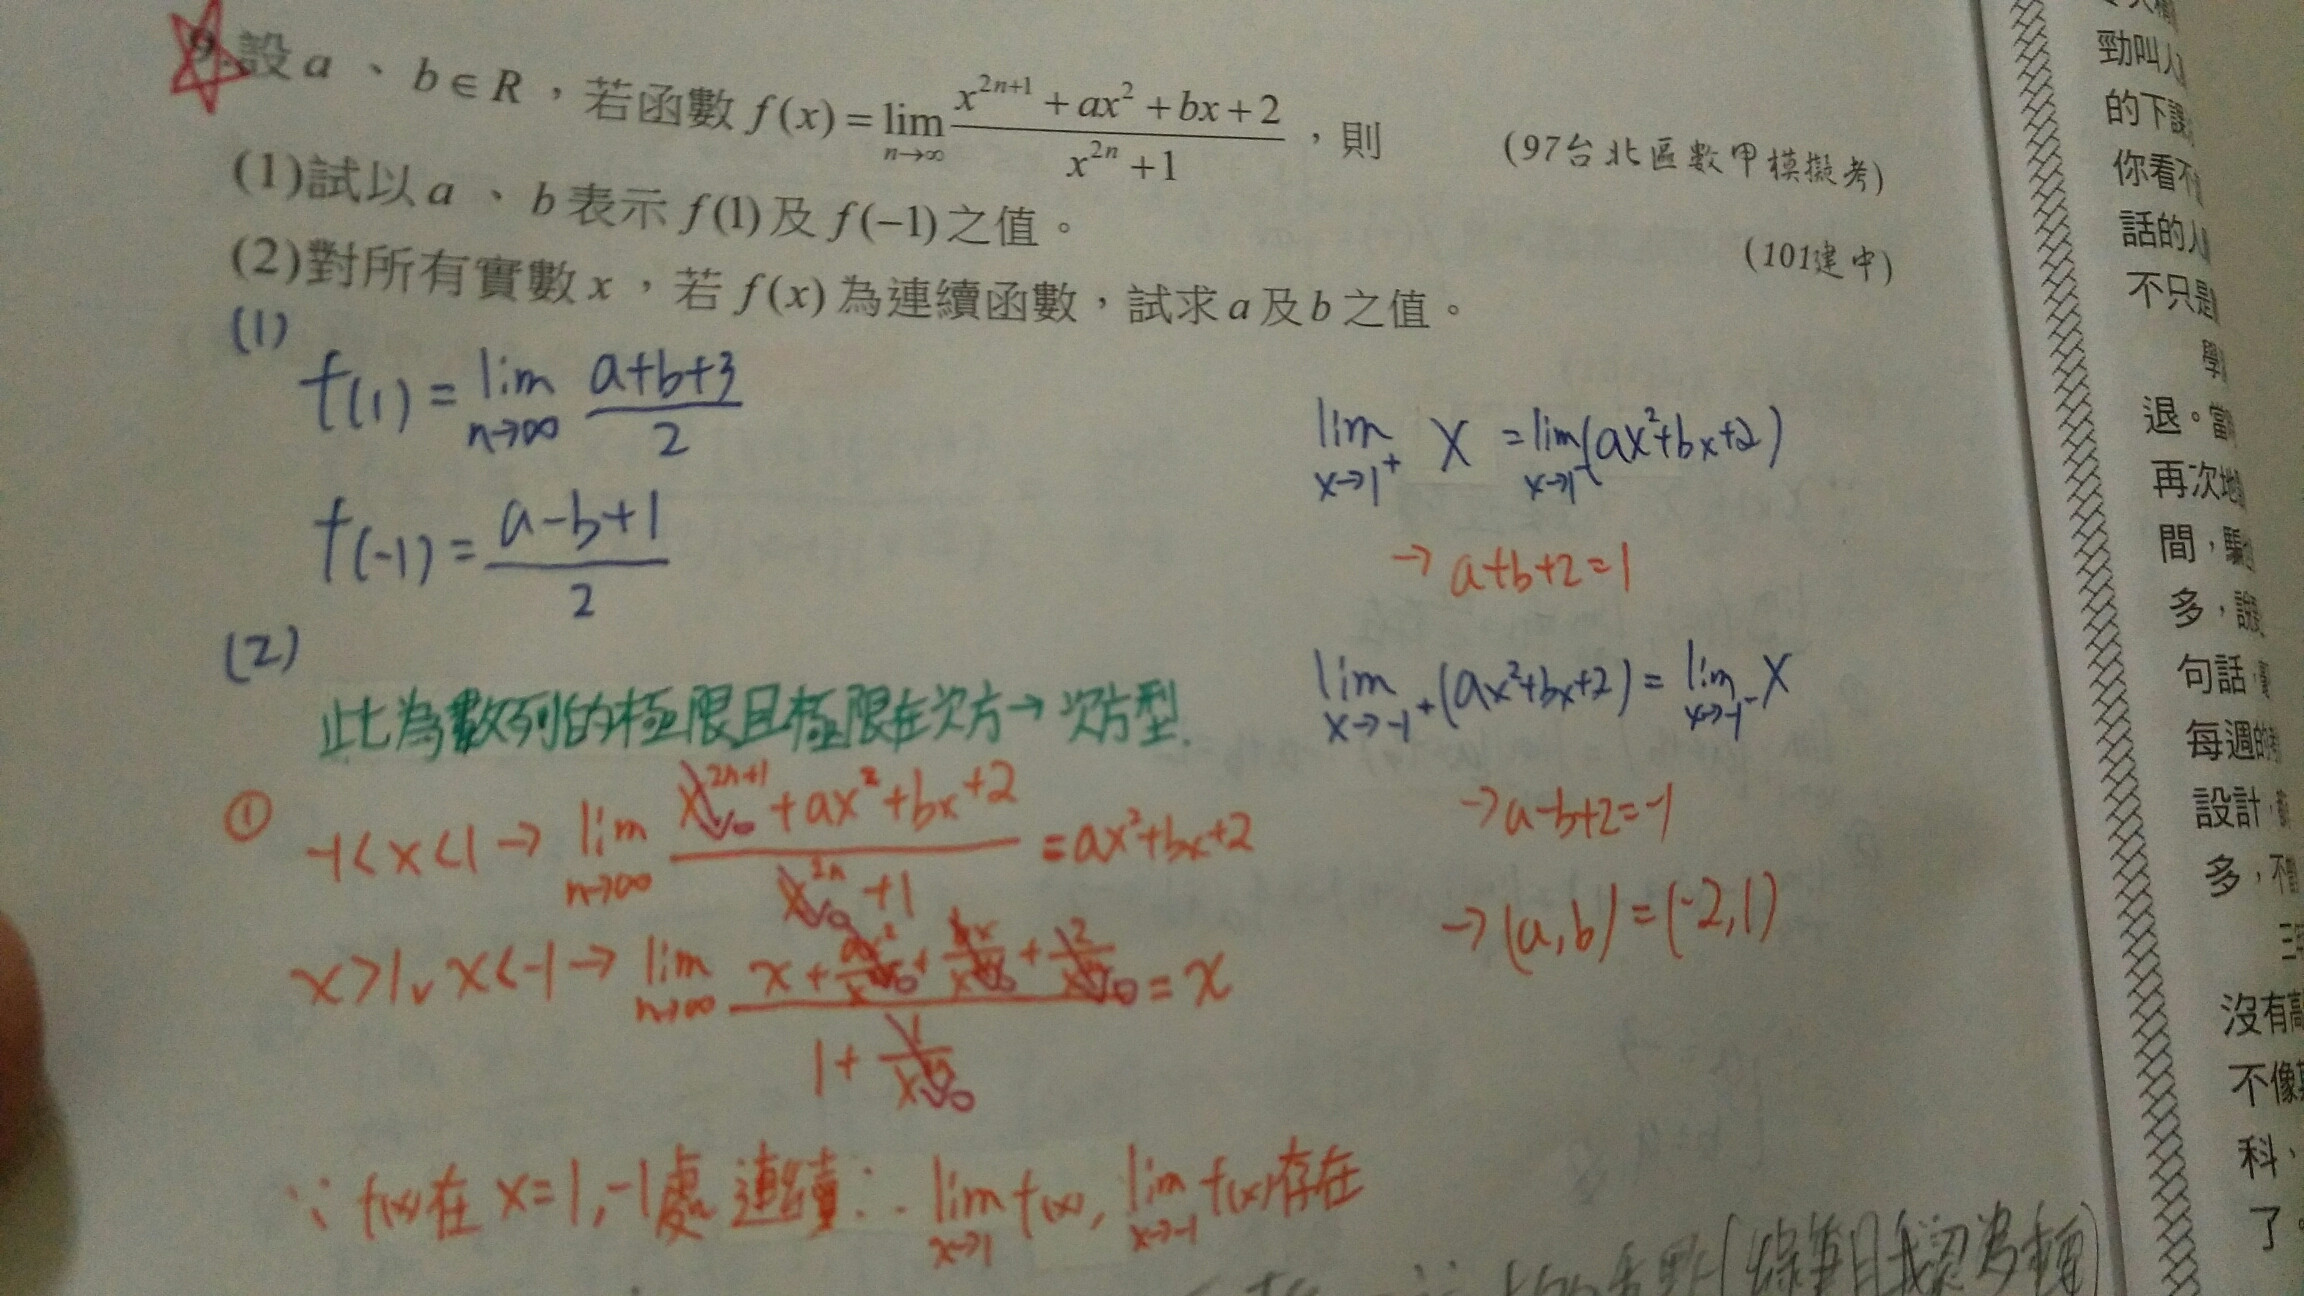 9.設a、b∈R，若函數 f(x)=lim n→∞ (x^{2n+1}+ax²+bx+2)/(x^{2n}+1)，則
(97台北區數甲模擬考)
(1)試以a、b表示 f(1)及 f(−1)之值。
(101建中)
(2)對所有實數x，若 f(x)為連續函數，試求a及b之值。
(1)
f(1)=lim n→∞ (a+b+3)/2
f(-1)=(a-b+1)/2
(2)
此為數列的極限且極限在次方→次方型.
① -1<x<1→ lim n→∞ (x^{2n+1}→0+ax²+bx+2)/(x^{2n}→0+1) =ax²+bx+2
x>1, x<-1→ lim n→∞
=x
∵ f(x)在x=1,-1處連續∴ lim x→1 f(x), lim x→-1 f(x)存在
lim x→1⁺ x = lim x→1⁻ (ax²+bx+2)
→ a+b+2=1
lim x→-1⁺ (ax²+bx+2) = lim x→-1⁻ x
→a-b+2=-1
→(a,b)=(-2,1)
勁叫人
的下課
你看不
話的人
不只是
學
退。當
再次地
間，騙
多，說
句話，
每週的
設計，
多，不
沒有高
不像
科、
了。